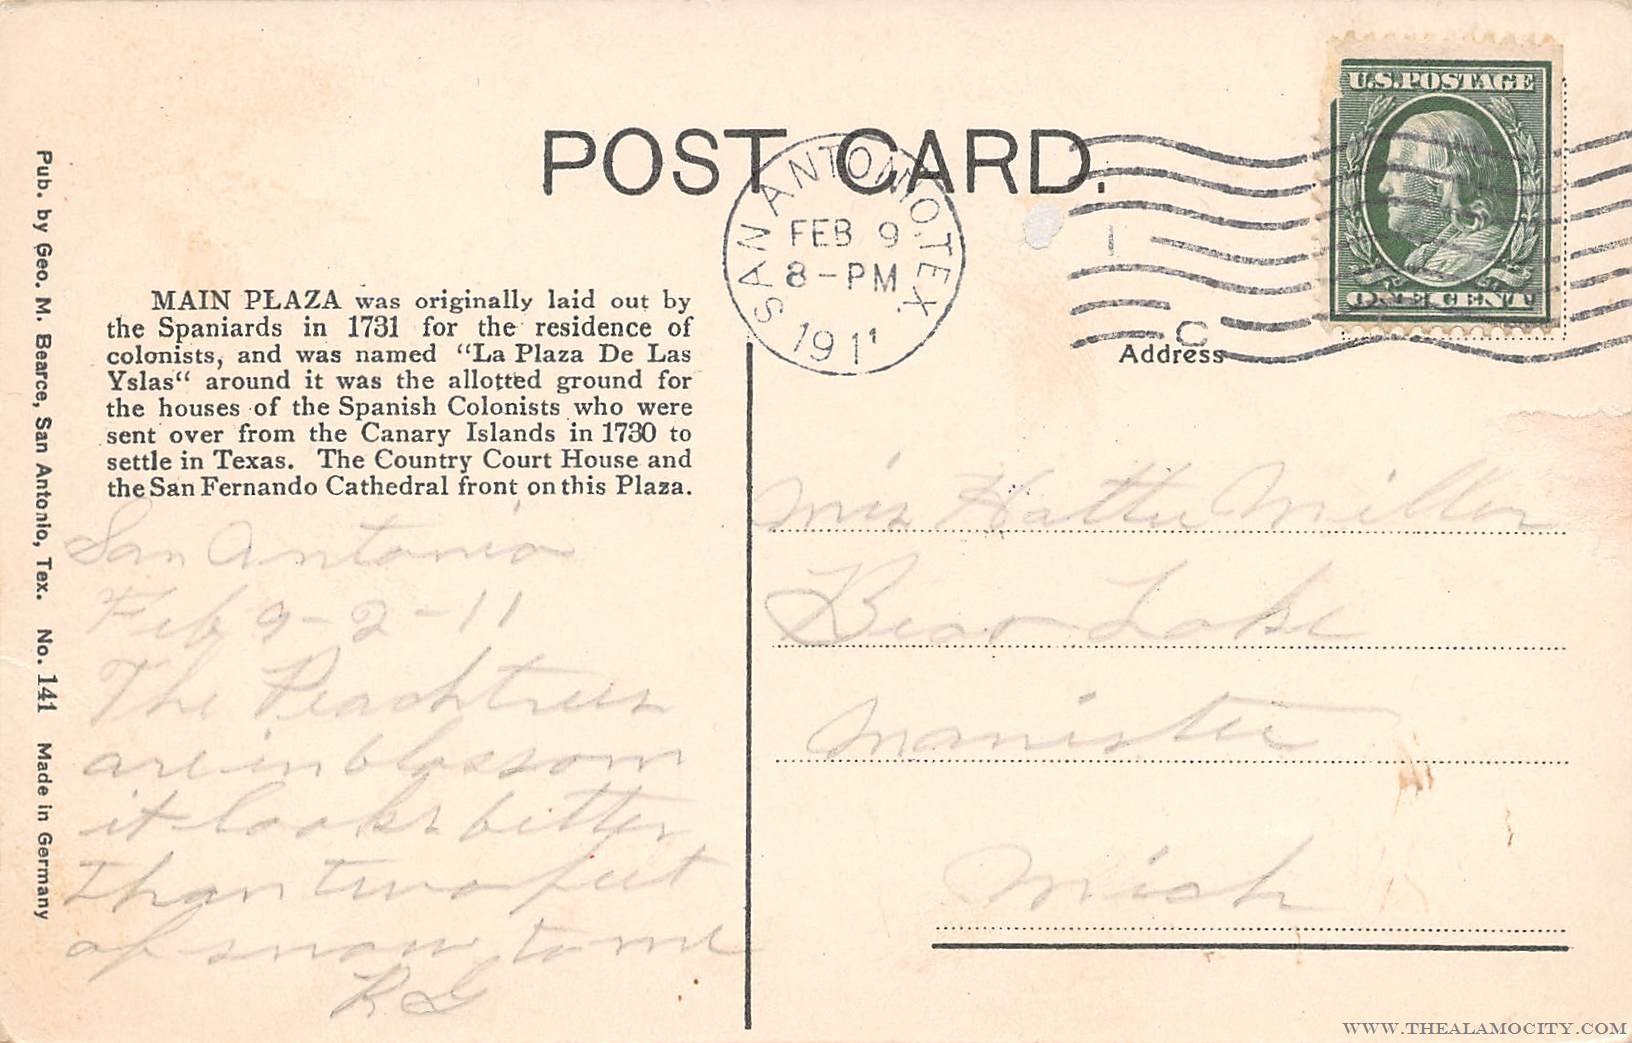 POST CARD.
U.S. POSTAGE
ONE CENT
SAN ANTONIO, TEX.
FEB 9
8-PM
1911
1
C
Address
MAIN PLAZA was originally laid out by
the Spaniards in 1731 for the residence of
colonists, and was named “La Plaza De Las
Yslas“ around it was the allotted ground for
the houses of the Spanish Colonists who were
sent over from the Canary Islands in 1730 to
settle in Texas. The Country Court House and
the San Fernando Cathedral front on this Plaza.
Pub. by Geo. M. Bearce, San Antonio, Tex. No. 141 Made in Germany
San Antonio
Feb 9-2-11
The Peachtrees
are in blossom
it looks better
than two feet
of snow to me
R G
Mis Hattie Miller
Bear Lake
Manistee
Mich
WWW.THEALAMOCITY.COM